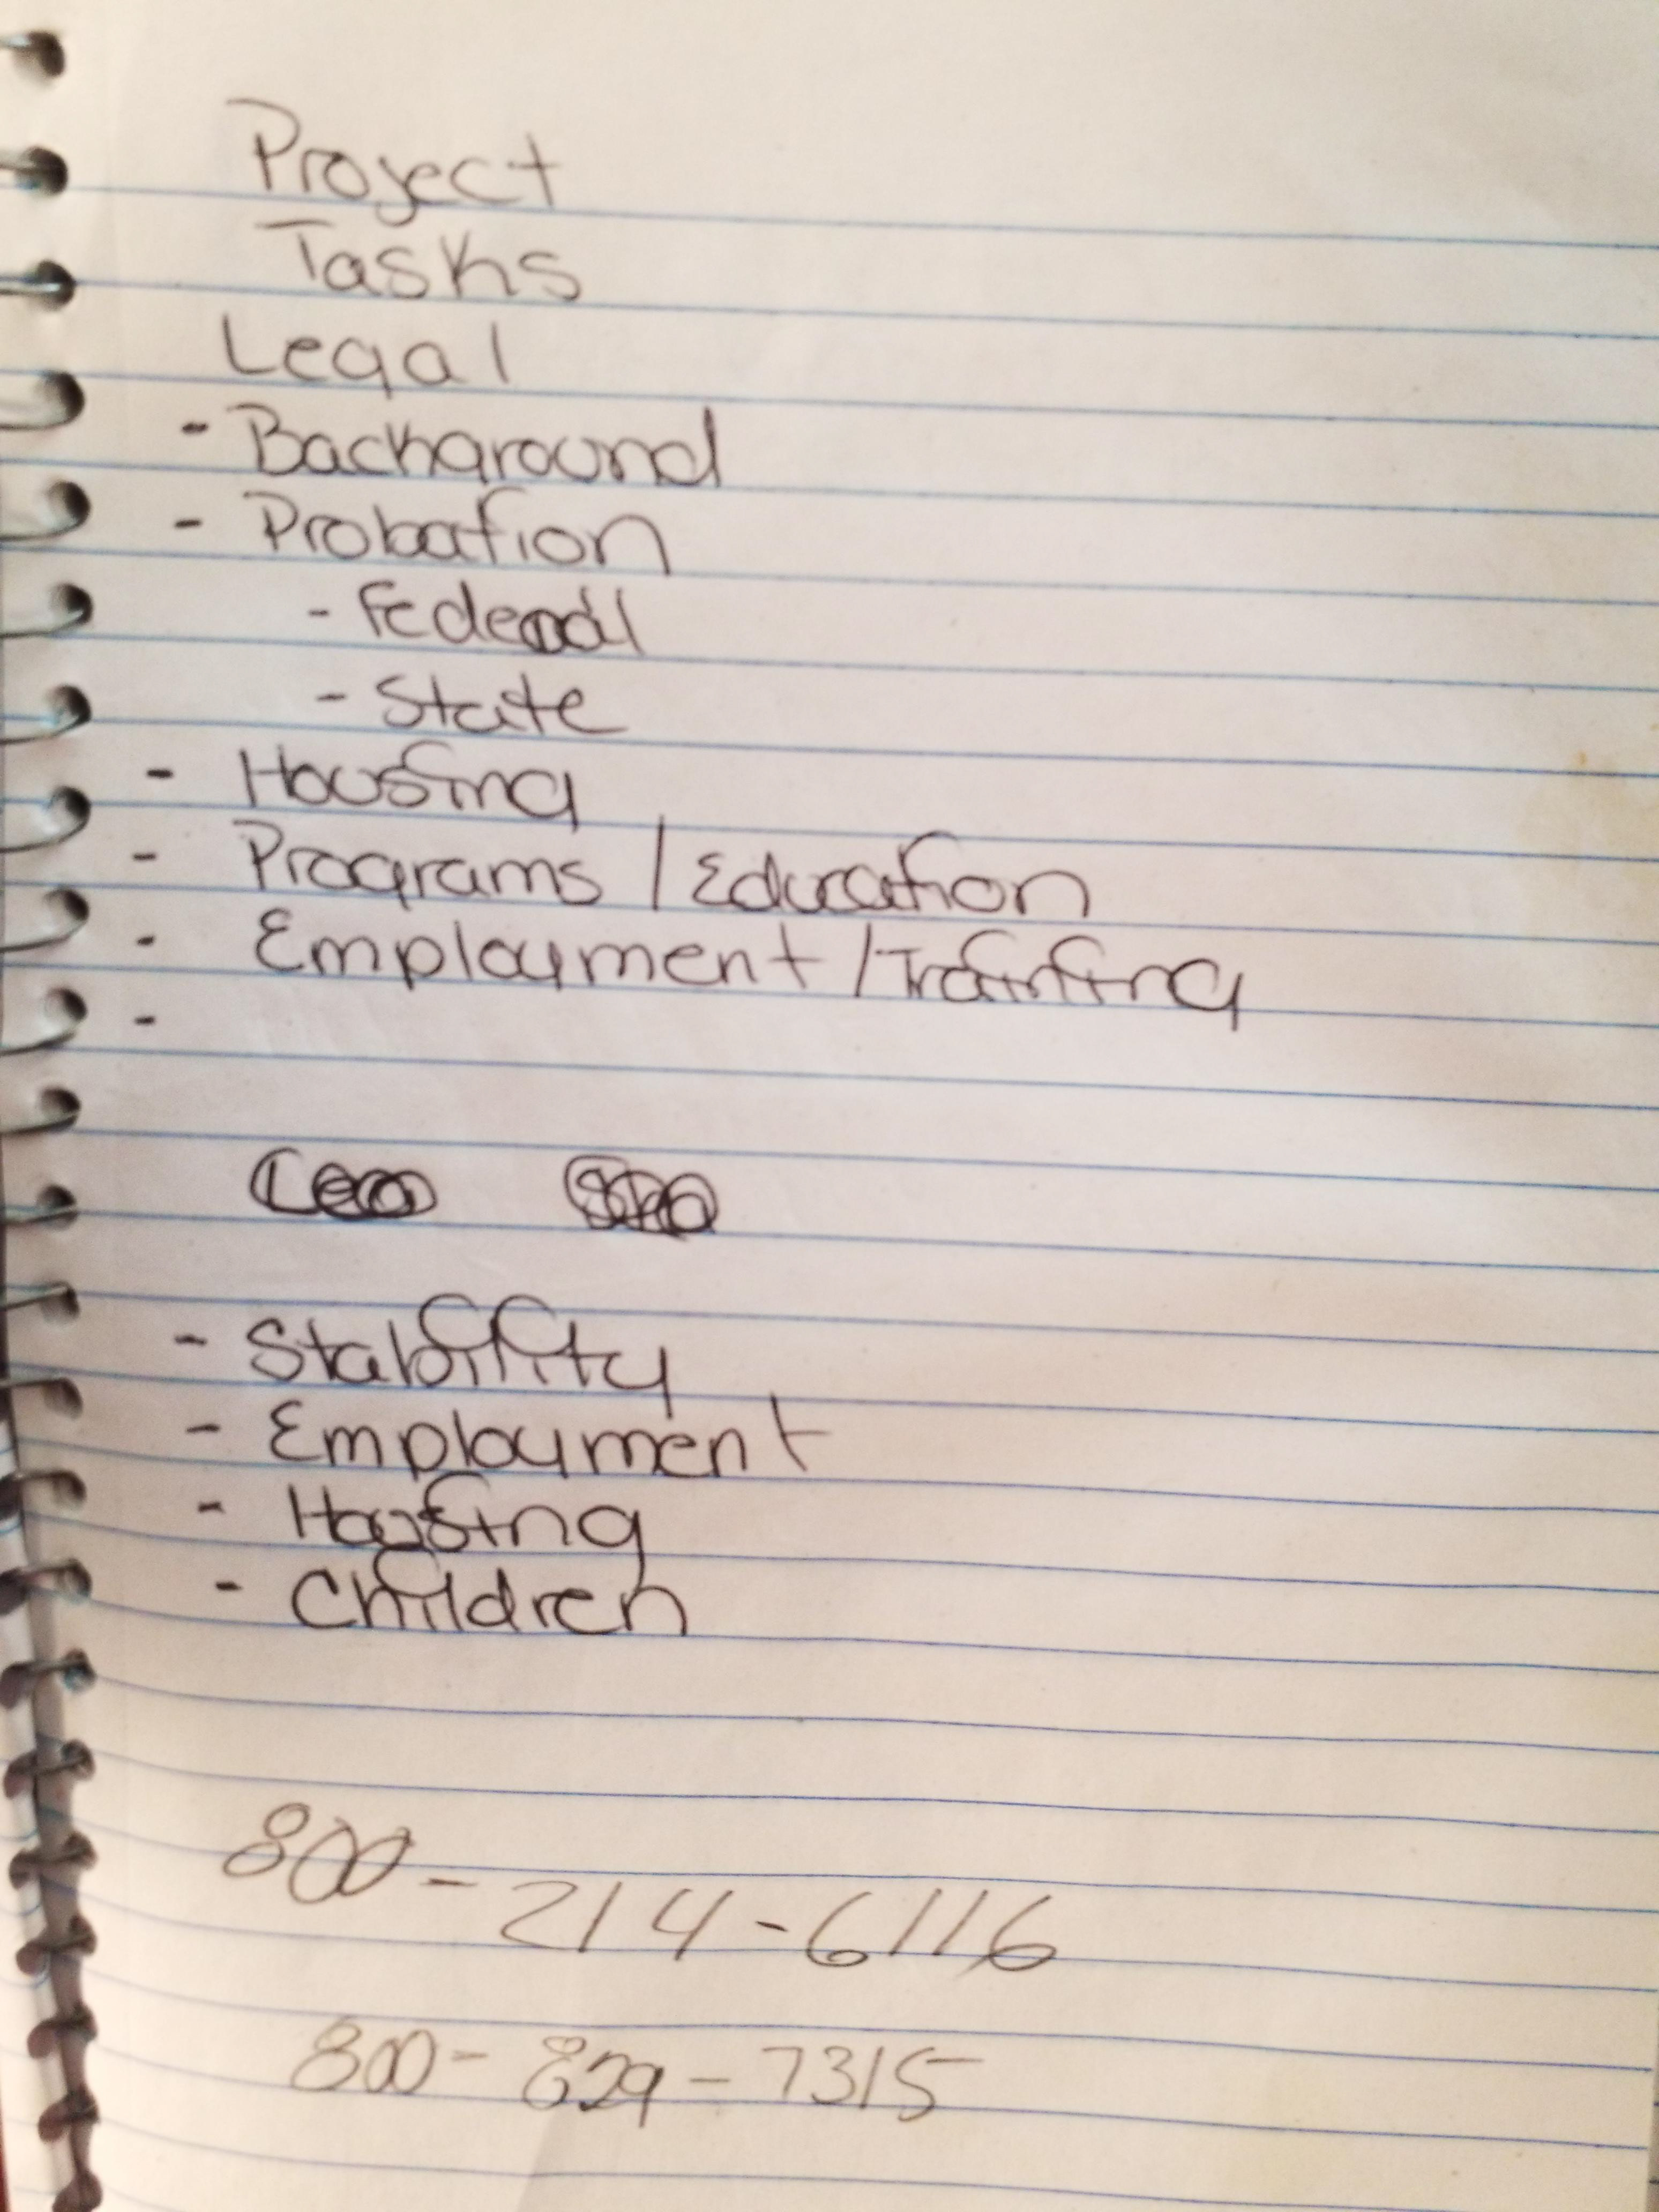 Project
Tasks
Legal
- Background
- Probation
- Federal
- State
- Housing
- Programs / Education
- Employment / Training
-
- Stability
- Employment
- Housing
- Children
800-214-6116
800-829-7315